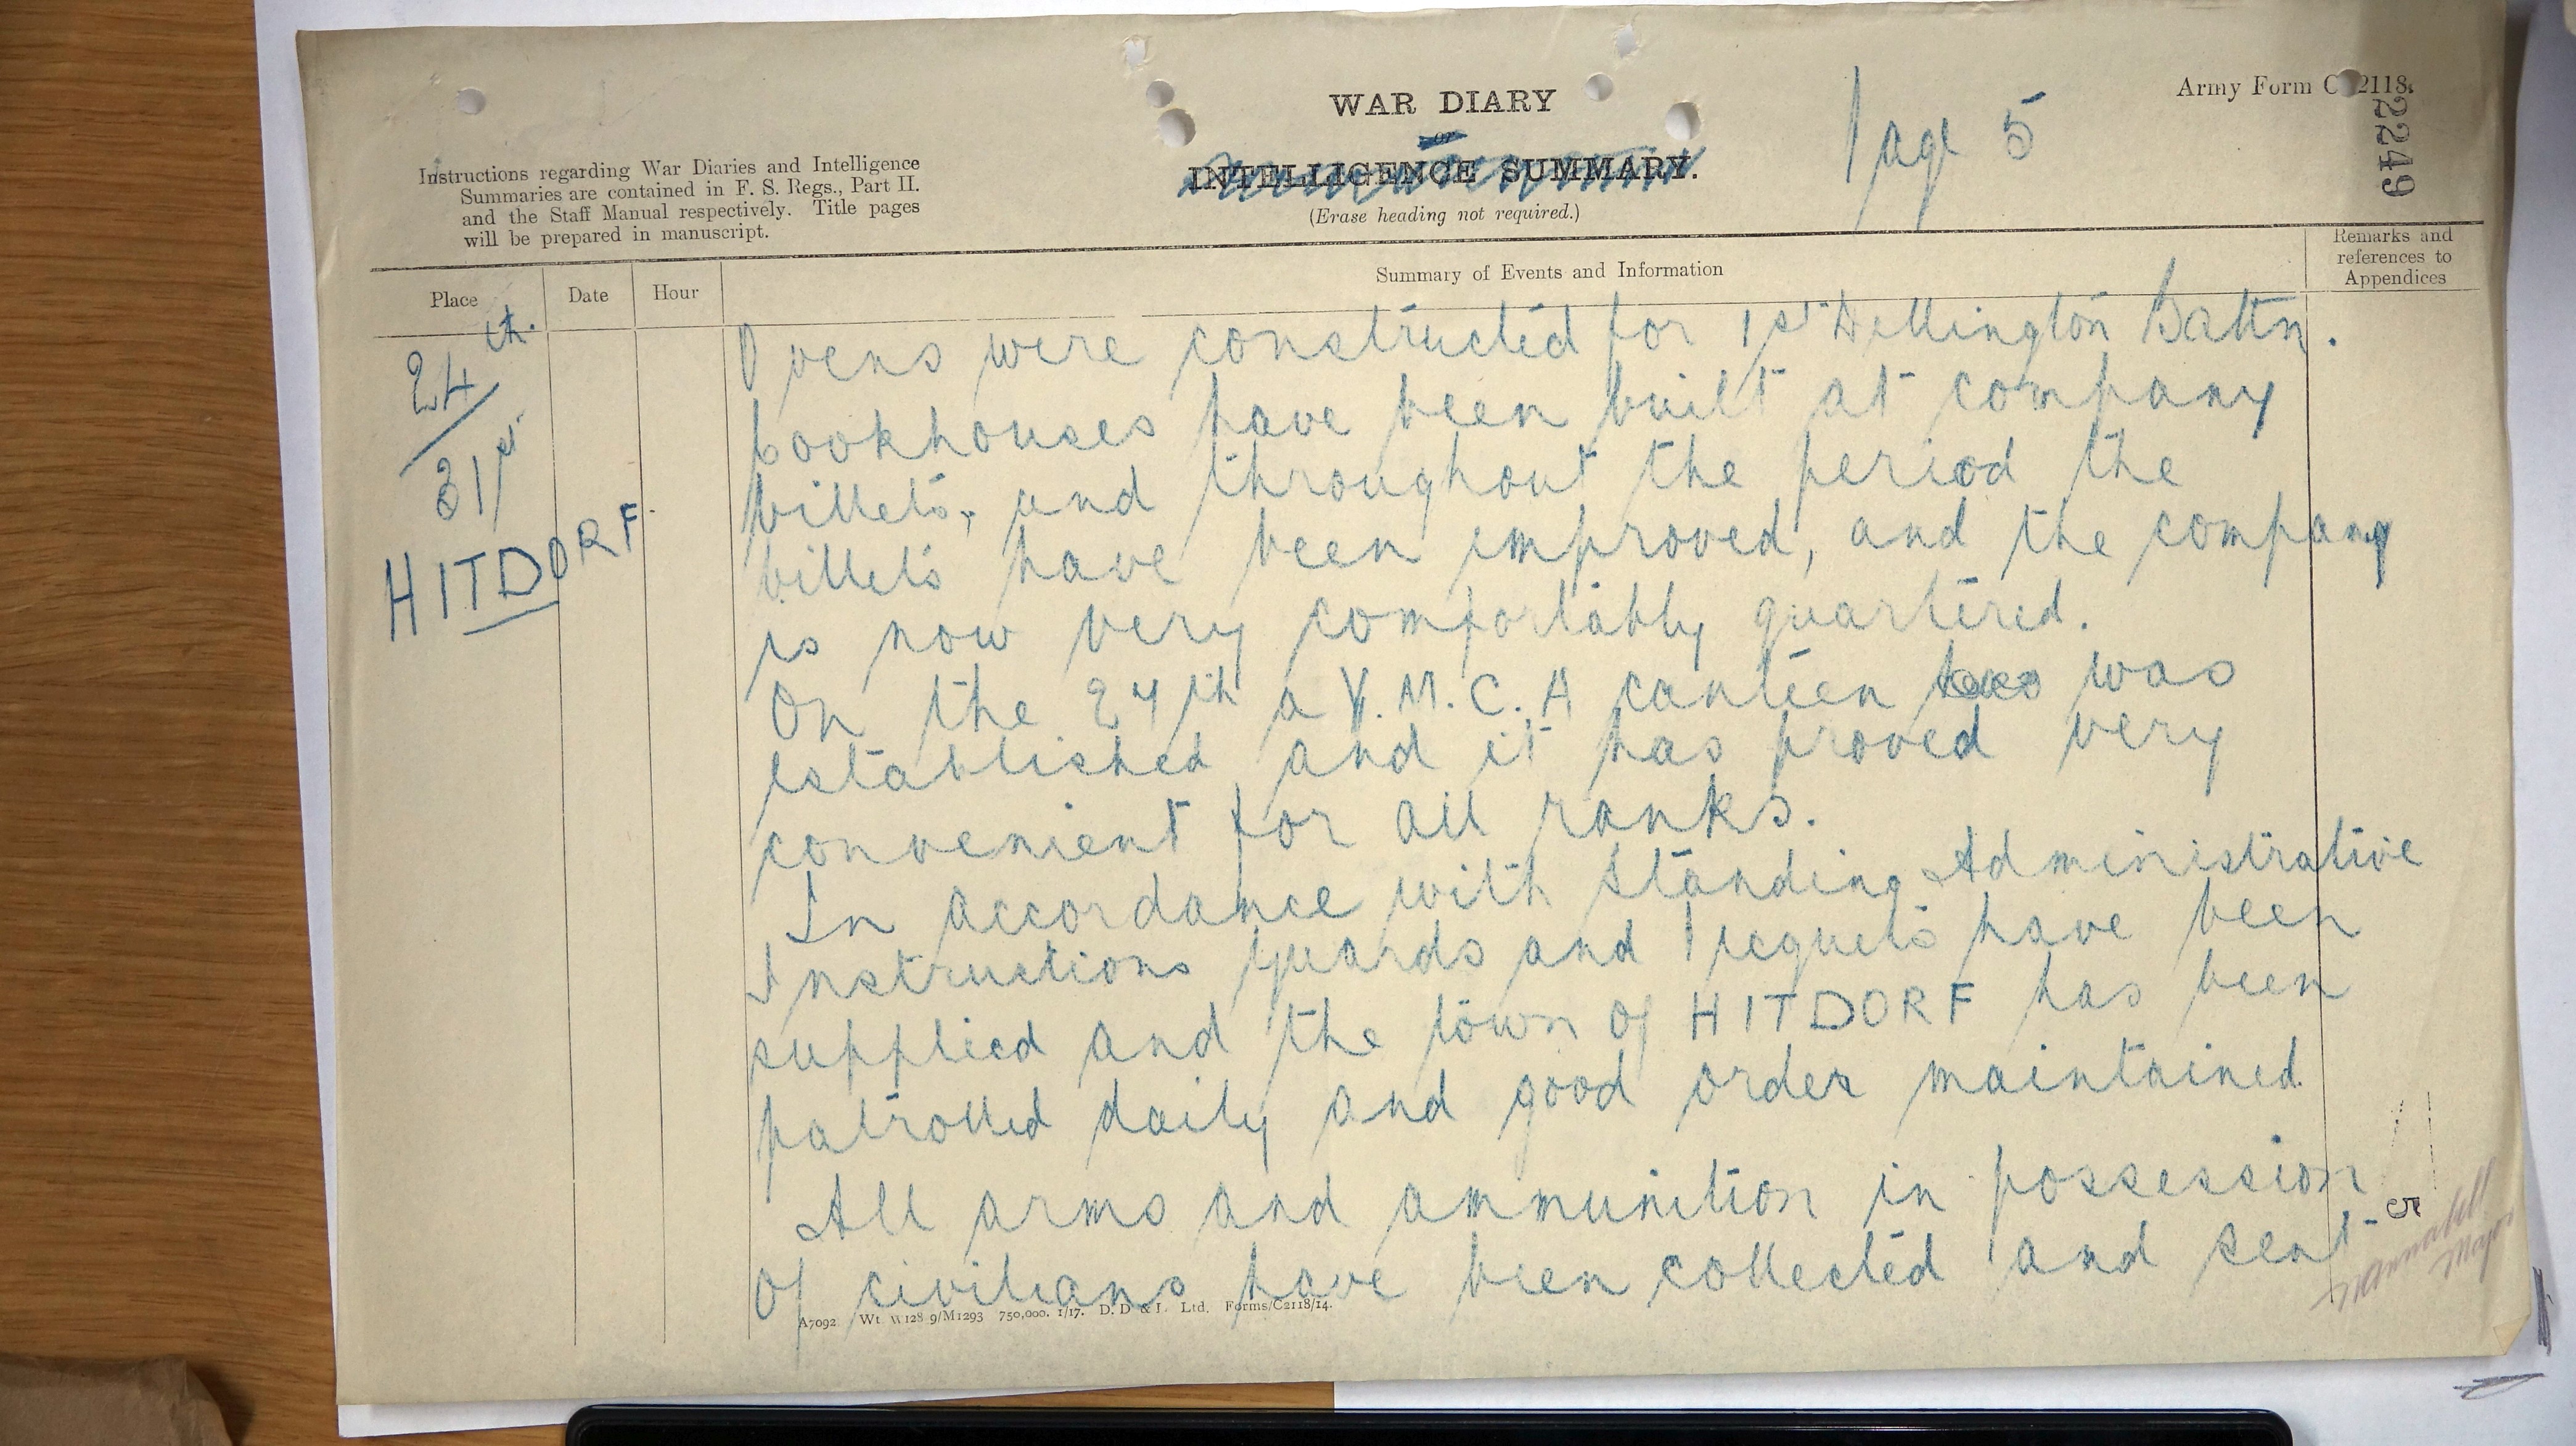 Army Form C 2118.
2249
WAR DIARY
or
INTELLIGENCE SUMMARY.
(Erase heading not required.)
Page 5
Instructions regarding War Diaries and Intelligence
Summaries are contained in F. S. Regs., Part II.
and the Staff Manual respectively. Title pages
will be prepared in manuscript.
Place
Date
Hour
Summary of Events and Information
Remarks and
references to
Appendices
24th.
31st
HITDORF.
Ovens were constructed for 1st Wellington Battn.
Cookhouses have been built at company
billets, and throughout the period the
billets have been improved, and the company
is now very comfortably quartered.
On the 27th a Y.M.C.A canteen was
established and it has proved very
convenient for all ranks.
In accordance with Standing Administrative
Instructions guards and piquets have been
supplied and the town of HITDORF has been
patrolled daily and good order maintained
All arms and ammunition in possession
of civilians have been collected and sent
5
Major
A7092 Wt W128 9/M1293 750,000. 1/17. D. D & L. Ltd. Forms/C2118/14.